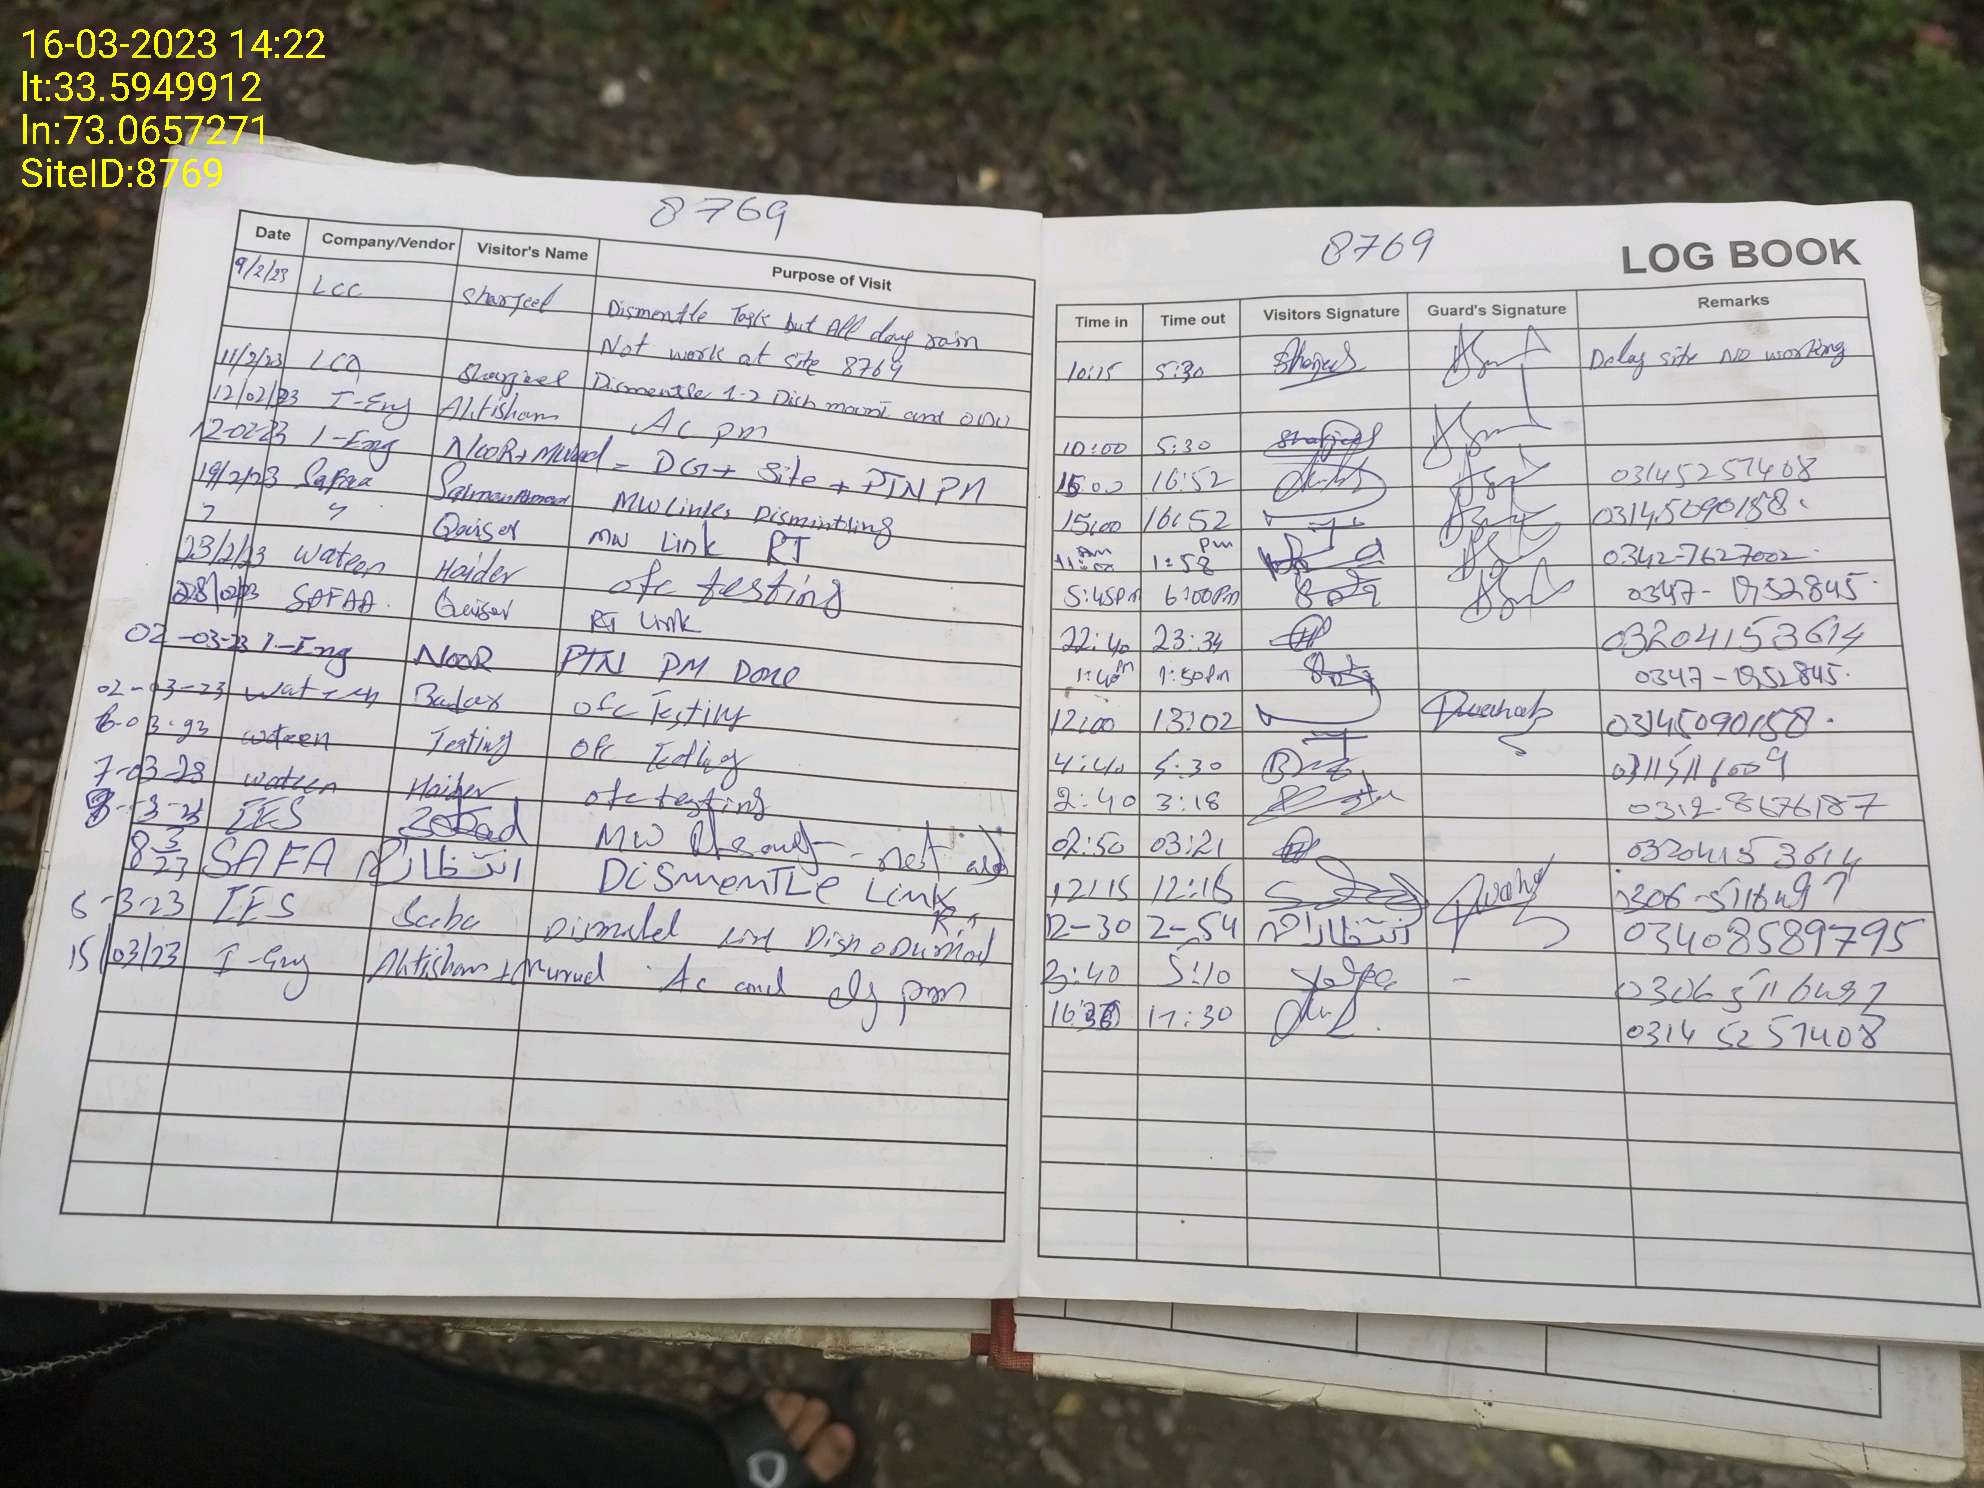 16-03-2023 14:22
lt:33.5949912
ln:73.0657271
SiteID:8769
8769
Date Company/Vendor Visitor's Name Purpose of Visit
9/2/23 LCC Sharjeel Dismentle Task but All day rain
Not work at site 8769
11/2/23 Sharjeel Dismentle 1-2 Dish mount and ODU
12/02/23 I-Eng Ahtisham Ac pm
12-02-23 I-Eng NOOR+ - DG+ Site + PTN PM
19/2/23 Safaa Salman Ahmad MW Links Dismintling
Qaiser MW Link RT
23/2/23 wateen Haider ofc testing
28/02/23 SAFAA. Qaiser RT Link
02-03-23 I-Eng NOOR PTN PM Done
02-03-23 Badar ofc Testing
6-03-23 wateen Testing ofc Testing
7-03-23 wateen Haider ofc testing
8-3-23 IES MW - not
8-3/23 SAFA انتظار DISMENTLE Link
6-3-23 IES Saba
R.T
15/03/23 I-Eng Ahtisham + Ac and dg pm
8769
LOG BOOK
Time in Time out Visitors Signature Guard's Signature Remarks
10:15 5:30 Sharjeel Delay site No working
10:00 5:30 Sharjeel
15:00 16:52 03145257408
15:00 16:52 03145090158.
11:00 am 1:58 pm 0342-7627002.
5:45pm 6:00pm
22:40 23:34 03204153614
1:40pm 1:50pm
12:00 13:02 03145090158.
4:40 5:30 03115116009
2:40 3:18 0312-8676187
02:50 03:21 03204153614
12:15 12:15
12-30 2-54 انتظار 03408589795
3:40 5:10 -
17:30 0314 5257408